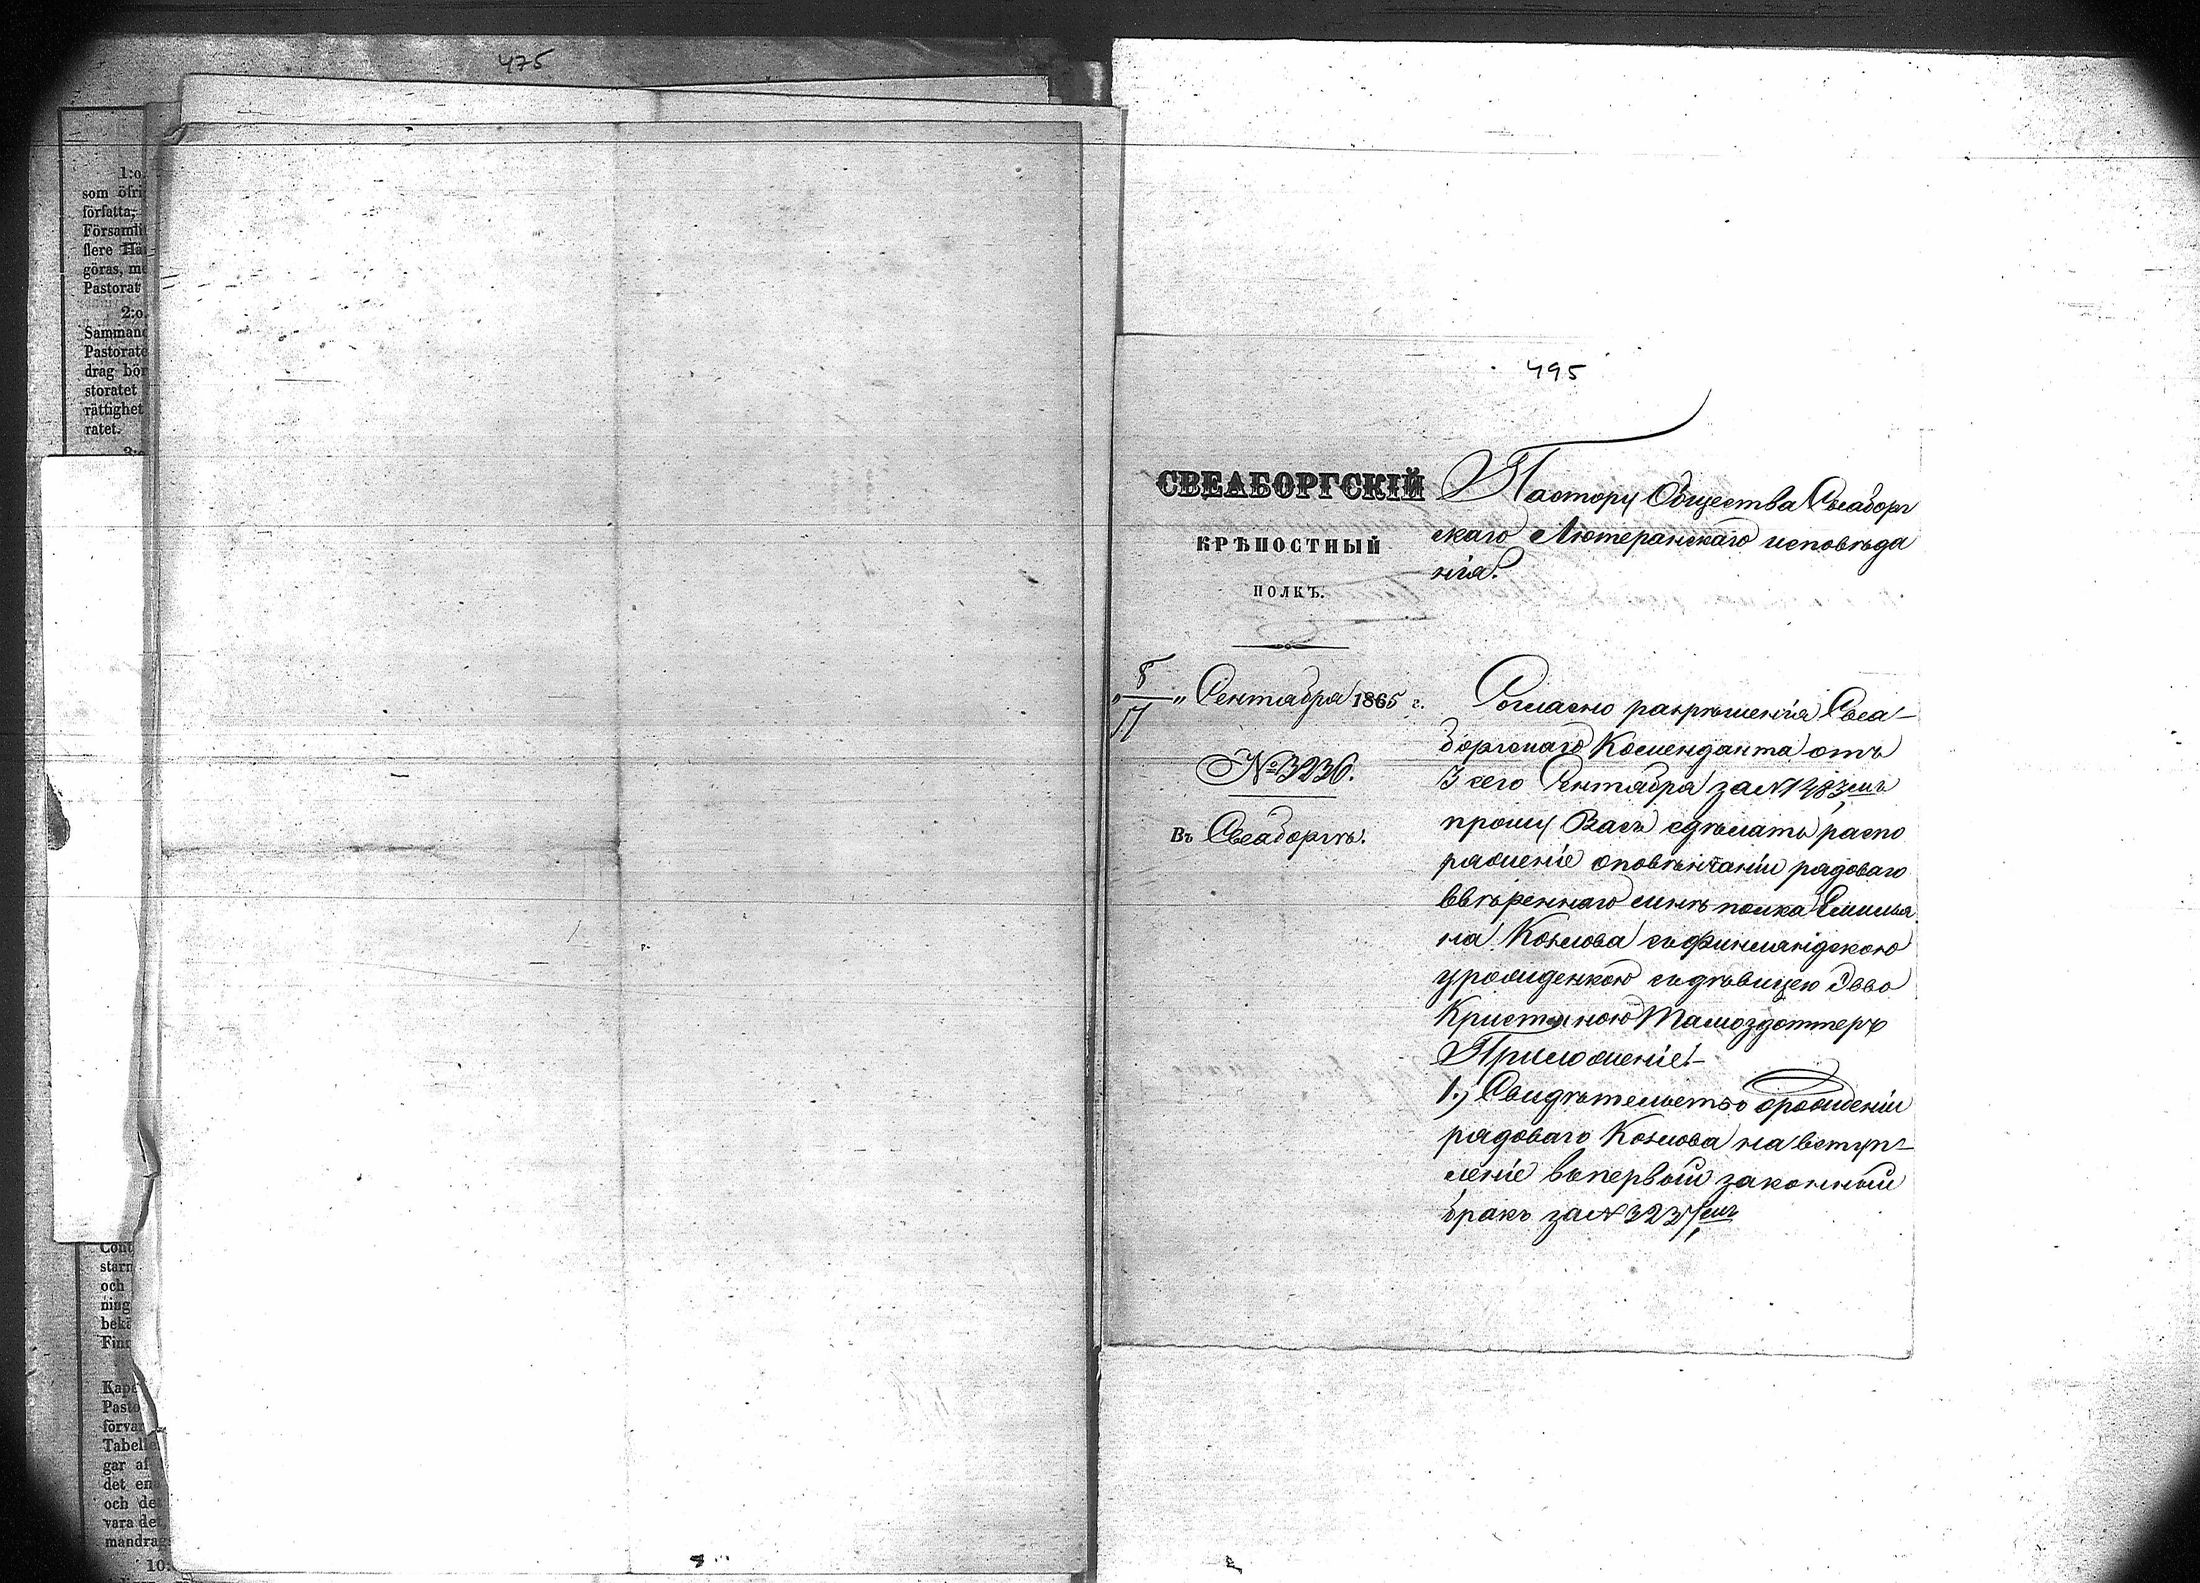 475
1:o.
som öfri
författa,
Församli
flere Hä
göras, me
Pastorat
2:o.
Sammand
Pastorate
drag bör
storatet
rättighet
ratet.
starn
och
ning
bekä
Finn
Kape
Pasto
förvar
Tabelle
gar af
det en
och de
vara de
mandrag
10:
495
СВЕАБОРГСКІЙ
КРѢПОСТНЫЙ
ПОЛКЪ.
„ 8/17 „ Сентября 1865 г.
№ 3236.
Въ Свеаборгѣ.
Пастору Общества Свеаборг
скаго Лютеранскаго исповѣда
нія.
Согласно разрѣшенія Свеа-
боргскаго Коменданта отъ
3 сего Сентября за № 1483мъ
прошу Васъ сдѣлать распо
ряженіе оповѣнчаніи рядоваго
ввѣреннаго мнѣ полка Емилья
на Козлова съ финляндскою
уроженкою съ дѣвицею Эвво
Кристиною Тамоздоттеръ
Приложеніе:-
1.) Свидѣтельство орожденіи
рядоваго Козлова на вступ-
леніе въ первый законный
бракъ за № 3237мъ